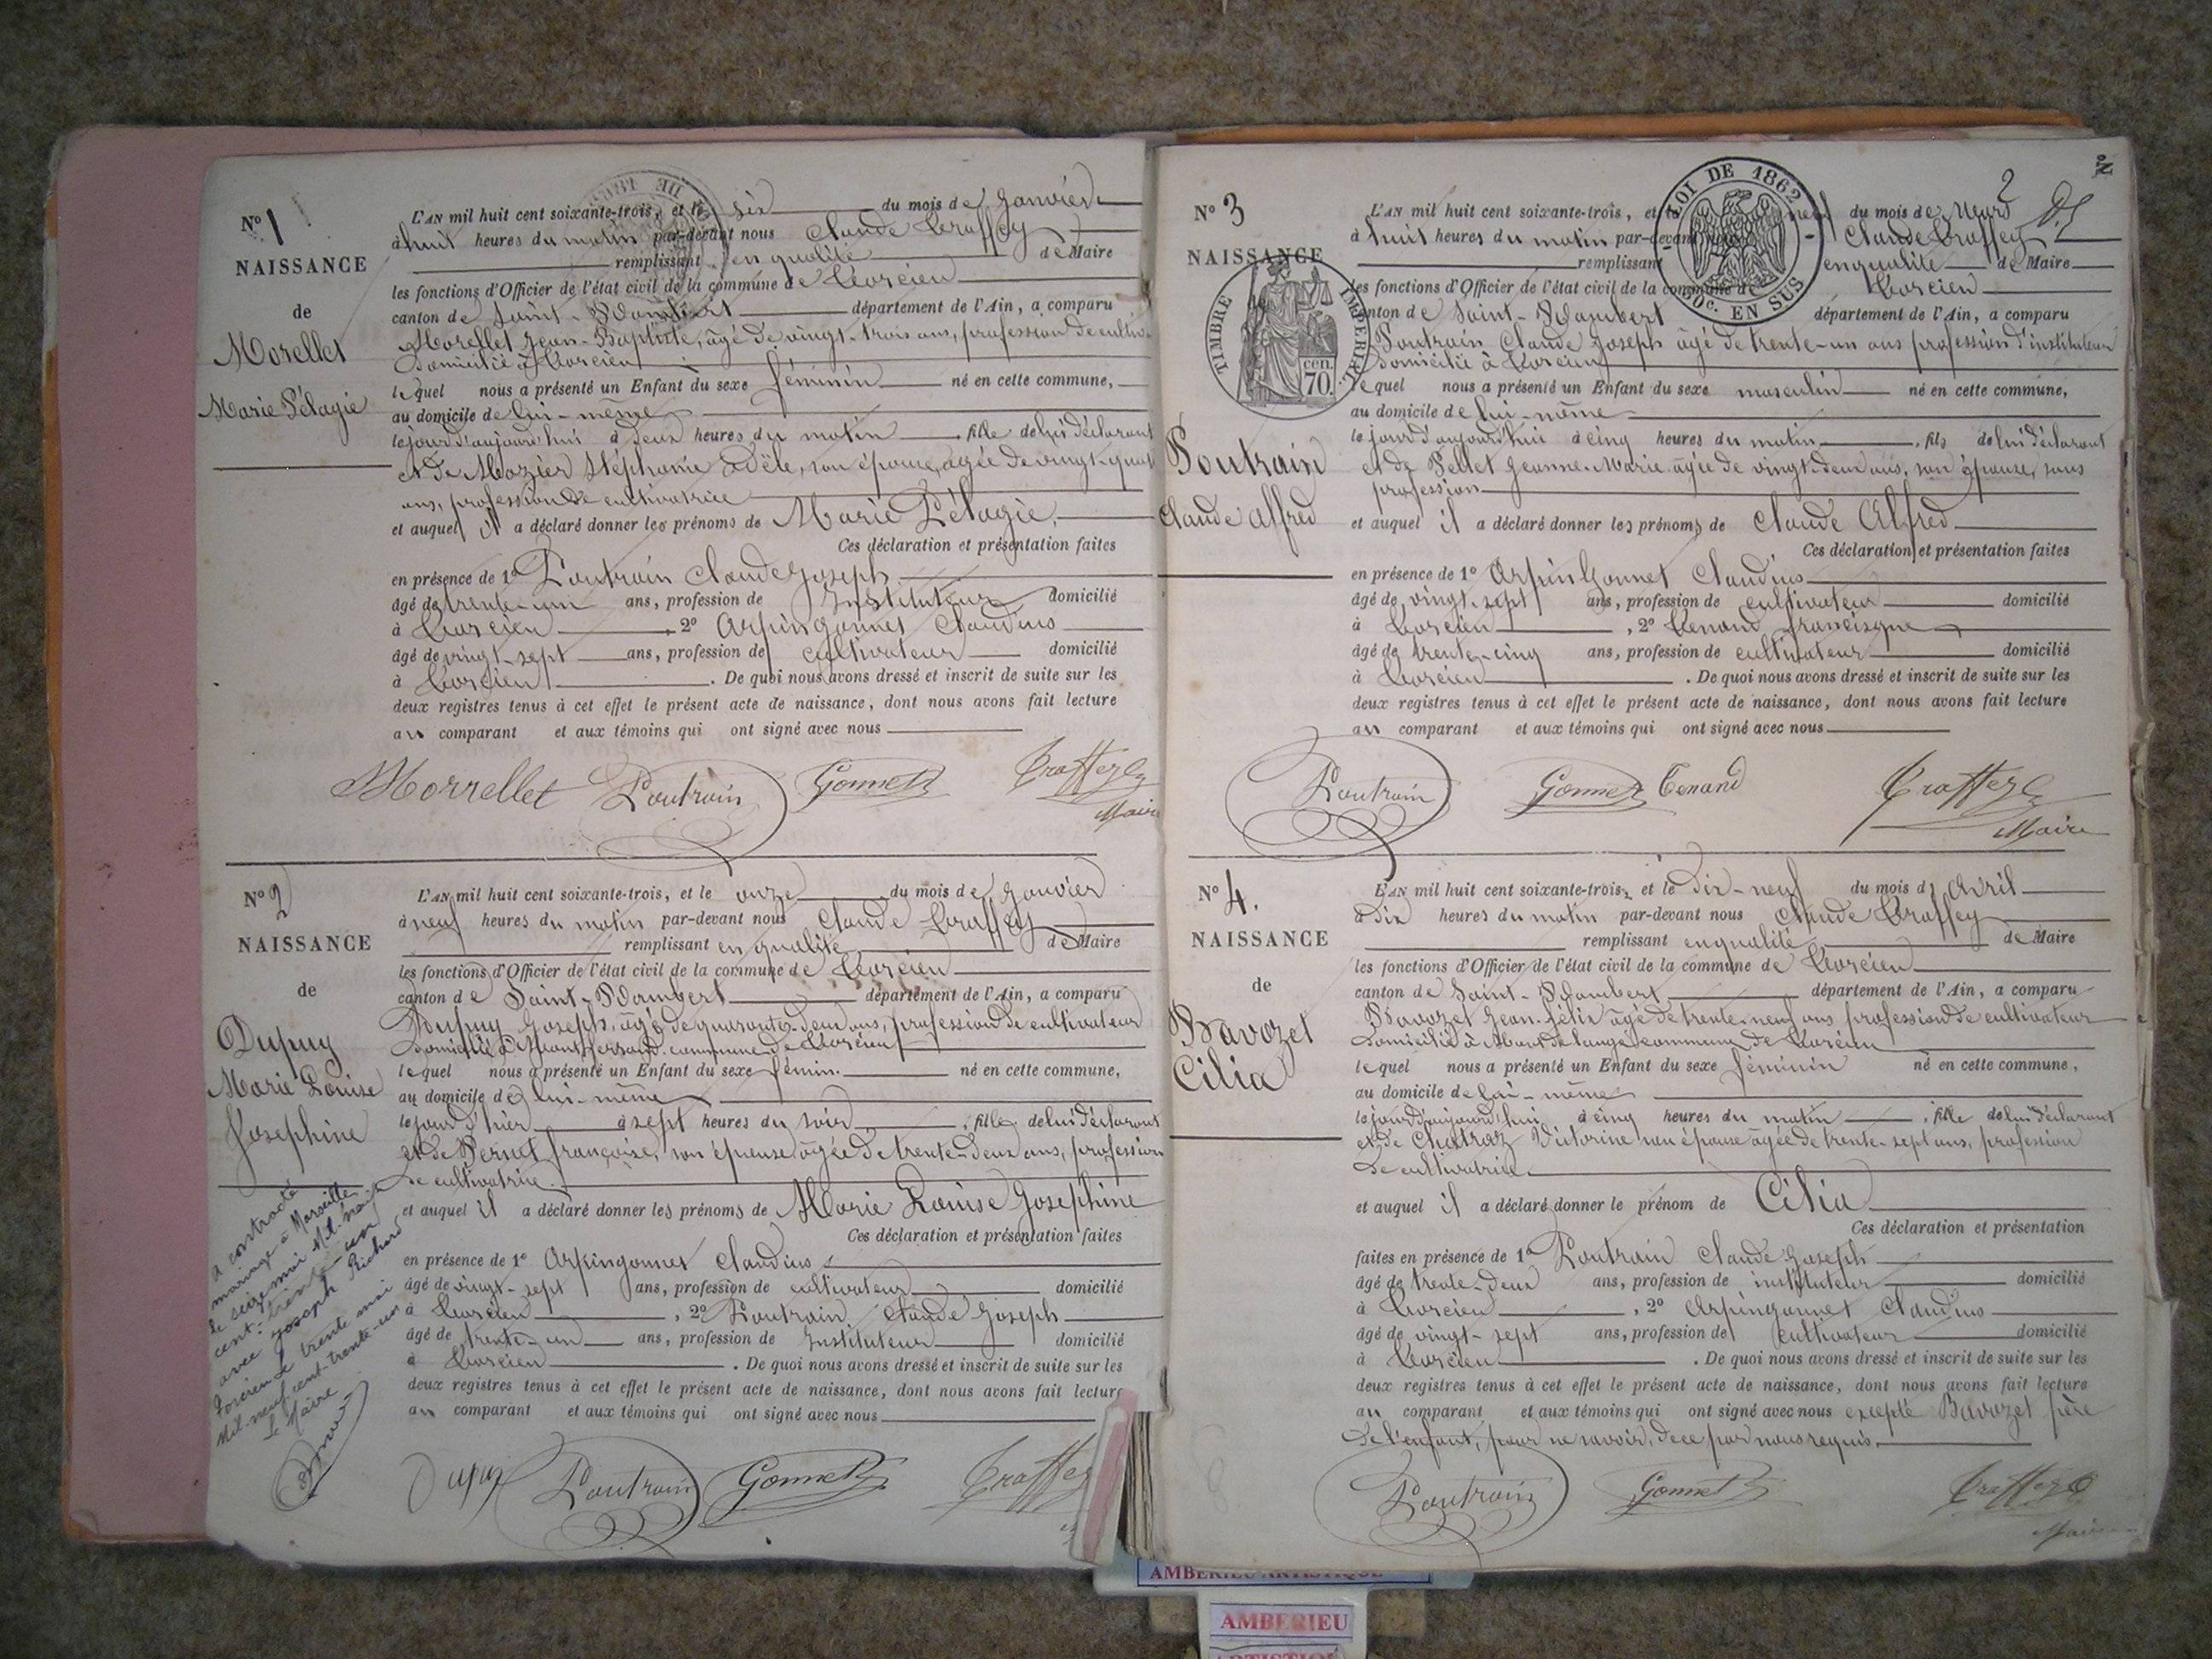 N° 1
NAISSANCE
de
Morellet
Marie Pélagie
L'AN mil huit cent soixante-trois, et le six du mois de Janvier
à huit heures du matin par-devant nous Claude Traffey
remplissant en qualité de Maire
les fonctions d'Officier de l'état civil de la commune de Torcieu
canton de Saint-Rambert département de l'Ain, a comparu
Morellet Jean-Baptiste, âgé de vingt-trois ans, profession de cultiv.
domicilié à Torcieu
lequel nous a présenté un Enfant du sexe féminin né en cette commune,
au domicile de lui-même
le jour d'aujourd'hui à deux heures du matin, fille de lui déclarant
et de Mozier Stéphanie Adèle, son épouse, âgée de vingt-quat
ans, profession de cultivatrice
et auquel il a déclaré donner les prénoms de Marie Pélagie,
Ces déclaration et présentation faites
en présence de 1° Poutrain Claude Joseph
âgé de trente-un ans, profession de Instituteur domicilié
à Torcieu, 2° Arpin Gonnet Claudius
âgé de vingt-sept ans, profession de cultivateur domicilié
à Torcieu. De quoi nous avons dressé et inscrit de suite sur les
deux registres tenus à cet effet le présent acte de naissance, dont nous avons fait lecture
au comparant et aux témoins qui ont signé avec nous
Morrellet Poutrain Gonnet Traffey
Maire
N° 2
NAISSANCE
de
Dupuy
Marie Louise
Joséphine
a contracté
mariage à Marseille
le seize mai Mil neuf
cent-trente-un
avec Joseph Richard
Torcieu le trente mai
Mil-neuf cent-trente-un
Le Maire
L'AN mil huit cent soixante-trois, et le onze du mois de Janvier
à neuf heures du matin par-devant nous Claude Traffey
remplissant en qualité de Maire
les fonctions d'Officier de l'état civil de la commune de Torcieu
canton de Saint-Rambert département de l'Ain, a comparu
Dupuy Joseph, âgé de quarante-deux ans, profession de cultivateur
domicilié à commune de Torcieu
lequel nous a présenté un Enfant du sexe fémin. né en cette commune,
au domicile de lui-même
le jour d'hier à sept heures du soir, fille de lui déclarant
et de Pernet françoise, son épouse âgée de trente-deux ans, profession
de cultivatrice.
et auquel il a déclaré donner les prénoms de Marie Louise Joséphine
Ces déclaration et présentation faites
en présence de 1° Arpin Gonnet Claudius
âgé de vingt-sept ans, profession de cultivateur domicilié
à Torcieu, 2° Poutrain Claude Joseph
âgé de trente-un ans, profession de Instituteur domicilié
à Torcieu. De quoi nous avons dressé et inscrit de suite sur les
deux registres tenus à cet effet le présent acte de naissance, dont nous avons fait lecture
au comparant et aux témoins qui ont signé avec nous
Dupuy Poutrain Gonnet Traffey
2
N°
LOI DE 1862
50c. EN SUS
TIMBRE IMPÉRIAL
cen.
70.
N° 3
NAISSANCE
Poutrain
Claude Alfred
L'AN mil huit cent soixante-trois, et le neuf du mois de Mars
à huit heures du matin par-devant nous Claude Traffey
remplissant en qualité de Maire
les fonctions d'Officier de l'état civil de la commune de Torcieu
canton de Saint-Rambert département de l'Ain, a comparu
Poutrain Claude Joseph âgé de trente-un ans profession d'instituteur
domicilié à Torcieu
lequel nous a présenté un Enfant du sexe masculin né en cette commune,
au domicile de lui-même
le jour d'aujourd'hui à cinq heures du matin, fils de lui déclarant
et de Pellet Jeanne-Marie âgée de vingt-deux ans, son épouse, sans
profession
et auquel il a déclaré donner les prénoms de Claude Alfred
Ces déclaration et présentation faites
en présence de 1° Arpin Gonnet Claudius
âgé de vingt-sept ans, profession de cultivateur domicilié
à Torcieu, 2° Tenand francisque
âgé de trente-cinq ans, profession de cultivateur domicilié
à Torcieu. De quoi nous avons dressé et inscrit de suite sur les
deux registres tenus à cet effet le présent acte de naissance, dont nous avons fait lecture
au comparant et aux témoins qui ont signé avec nous
Poutrain Gonnet Tenand Traffey
Maire
N° 4.
NAISSANCE
de
Bavozet
Cilia
L'AN mil huit cent soixante-trois, et le dix-neuf du mois d'Avril
à dix heures du matin par-devant nous Claude Traffey
remplissant en qualité de Maire
les fonctions d'Officier de l'état civil de la commune de Torcieu
canton de Saint-Rambert département de l'Ain, a comparu
Bavozet Jean-félix âgé de trente-neuf ans profession de cultivateur
domicilié à commune de Torcieu
lequel nous a présenté un Enfant du sexe féminin né en cette commune,
au domicile de lui-même
le jour d'aujourd'hui à cinq heures du matin, fille de lui déclarant
et de Victorine son épouse âgée de trente-sept ans, profession
de cultivatrice
et auquel il a déclaré donner le prénom de Cilia
Ces déclaration et présentation
faites en présence de 1° Poutrain Claude Joseph
âgé de trente-deux ans, profession de instituteur domicilié
à Torcieu, 2° Arpin Gonnet Claudius
âgé de vingt-sept ans, profession de cultivateur domicilié
à Torcieu. De quoi nous avons dressé et inscrit de suite sur les
deux registres tenus à cet effet le présent acte de naissance, dont nous avons fait lecture
au comparant et aux témoins qui ont signé avec nous excepté Bavozet père
de l'enfant, pour ne savoir, de ce par nous requis.
Poutrain Gonnet Traffey
Maire
AMBERIEU ARTISTIQUE
AMBERIEU
ARTISTIQUE